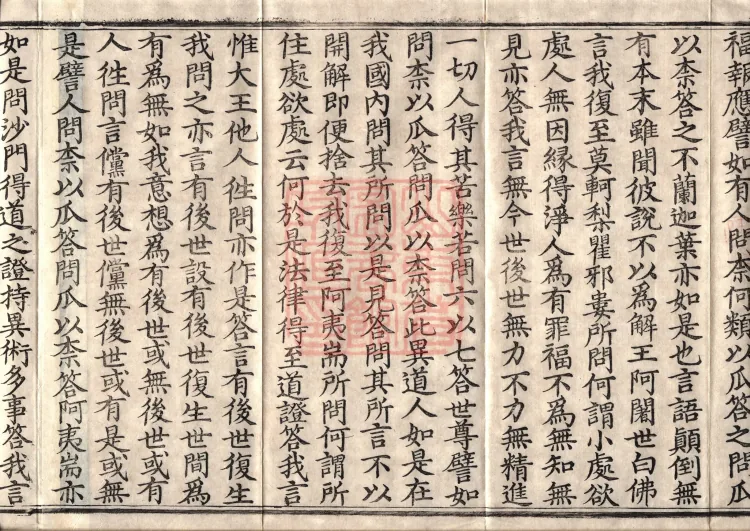 福報應譬如有人問柰何類以瓜答之問瓜
以柰答之不蘭迦葉亦如是也言語顚倒無
有本末雖聞彼說不以爲解王阿闍世白佛
言我復至莫軻梨瞿耶婁所問何謂小處欲
處人無因緣得淨人爲有罪福不爲無知無
見亦答我言無今世後世無力不力無精進
一切人得其苦樂若問六以七答世尊譬如
問柰以瓜答問瓜以柰答此異道人如是在
我國內問其所問以是見答問其所言不以
開解即便捨去我復至阿夷耑所問何謂所
住處欲處云何於是法律得至道證答我言
惟大王他人徃問亦作是答言有後世復生
我問之亦言有後世設有後世復生世間爲
有爲無如我意想爲有後世或無後世或有
人徃問言儻有後世儻無後世或有是或無
是譬人問柰以瓜答問瓜以柰答阿夷耑亦
如是問沙門得道之證持異術多事答我言